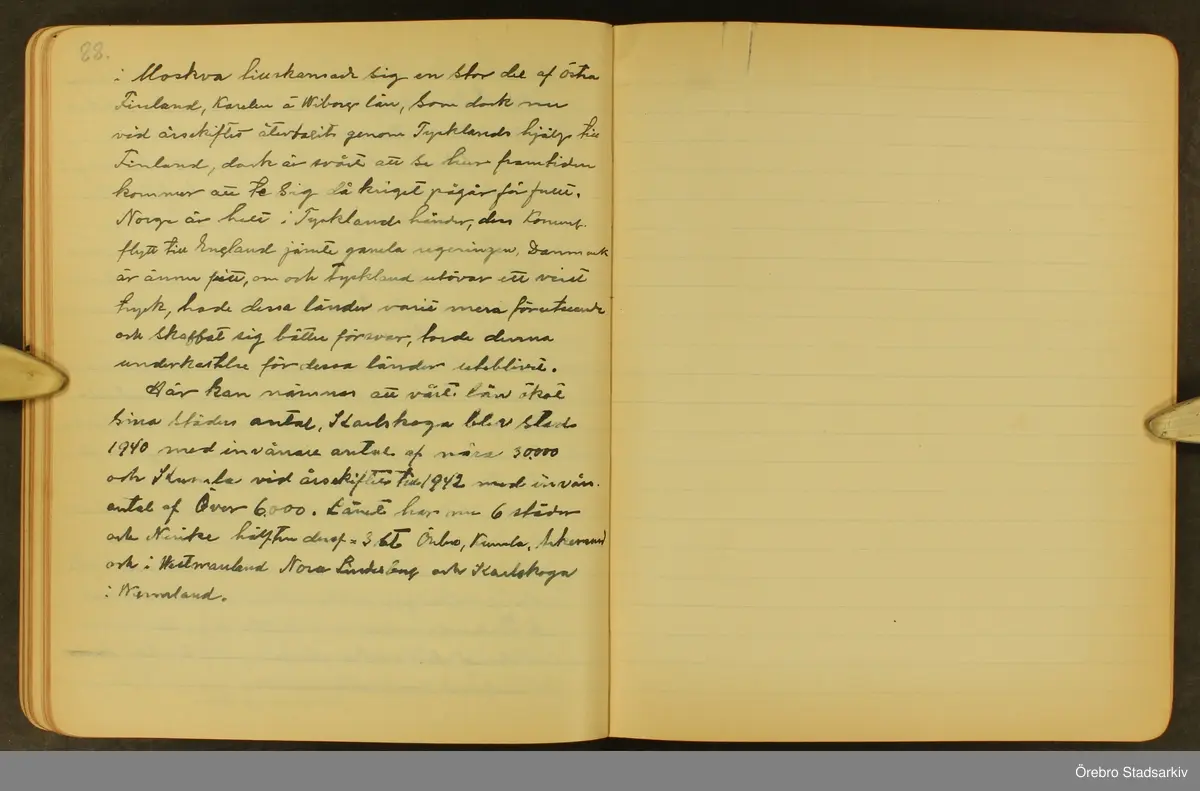 88.
i Moskva tillskansade sig en stor del af Östra
Finland, Karelen å Wiborgs län, som dock nu
vid årsskiftet återtagits genom Tysklands hjälp till
Finland, dock är svårt att se hur framtiden
kommer att te sig då kriget pågår för fullt.
Norge är helt i Tysklands händer, dess Konung
flytt till England jämte gamla regeringen. Danmark
är ännu fritt, om och Tyskland utövar ett visst
tryck, hade dessa länder varit mera förutseende
och skaffat sig bättre försvar, torde denna
underkastelse för dessa länder uteblivit.
Här kan nämnas att vårt län ökat
sina städers antal, Karlskoga blev stad
1940 med invånare antal af nära 30.000
och Kumla vid årsskiftet till 1942 med invån.
antal af Över 6.000. Länet har nu 6 städer
och Nerike hälften deraf = 3 st Örebro, Kumla, Askersund
och i Westmanland Nora Lindesberg och Karlskoga
i Wermland.
Örebro Stadsarkiv